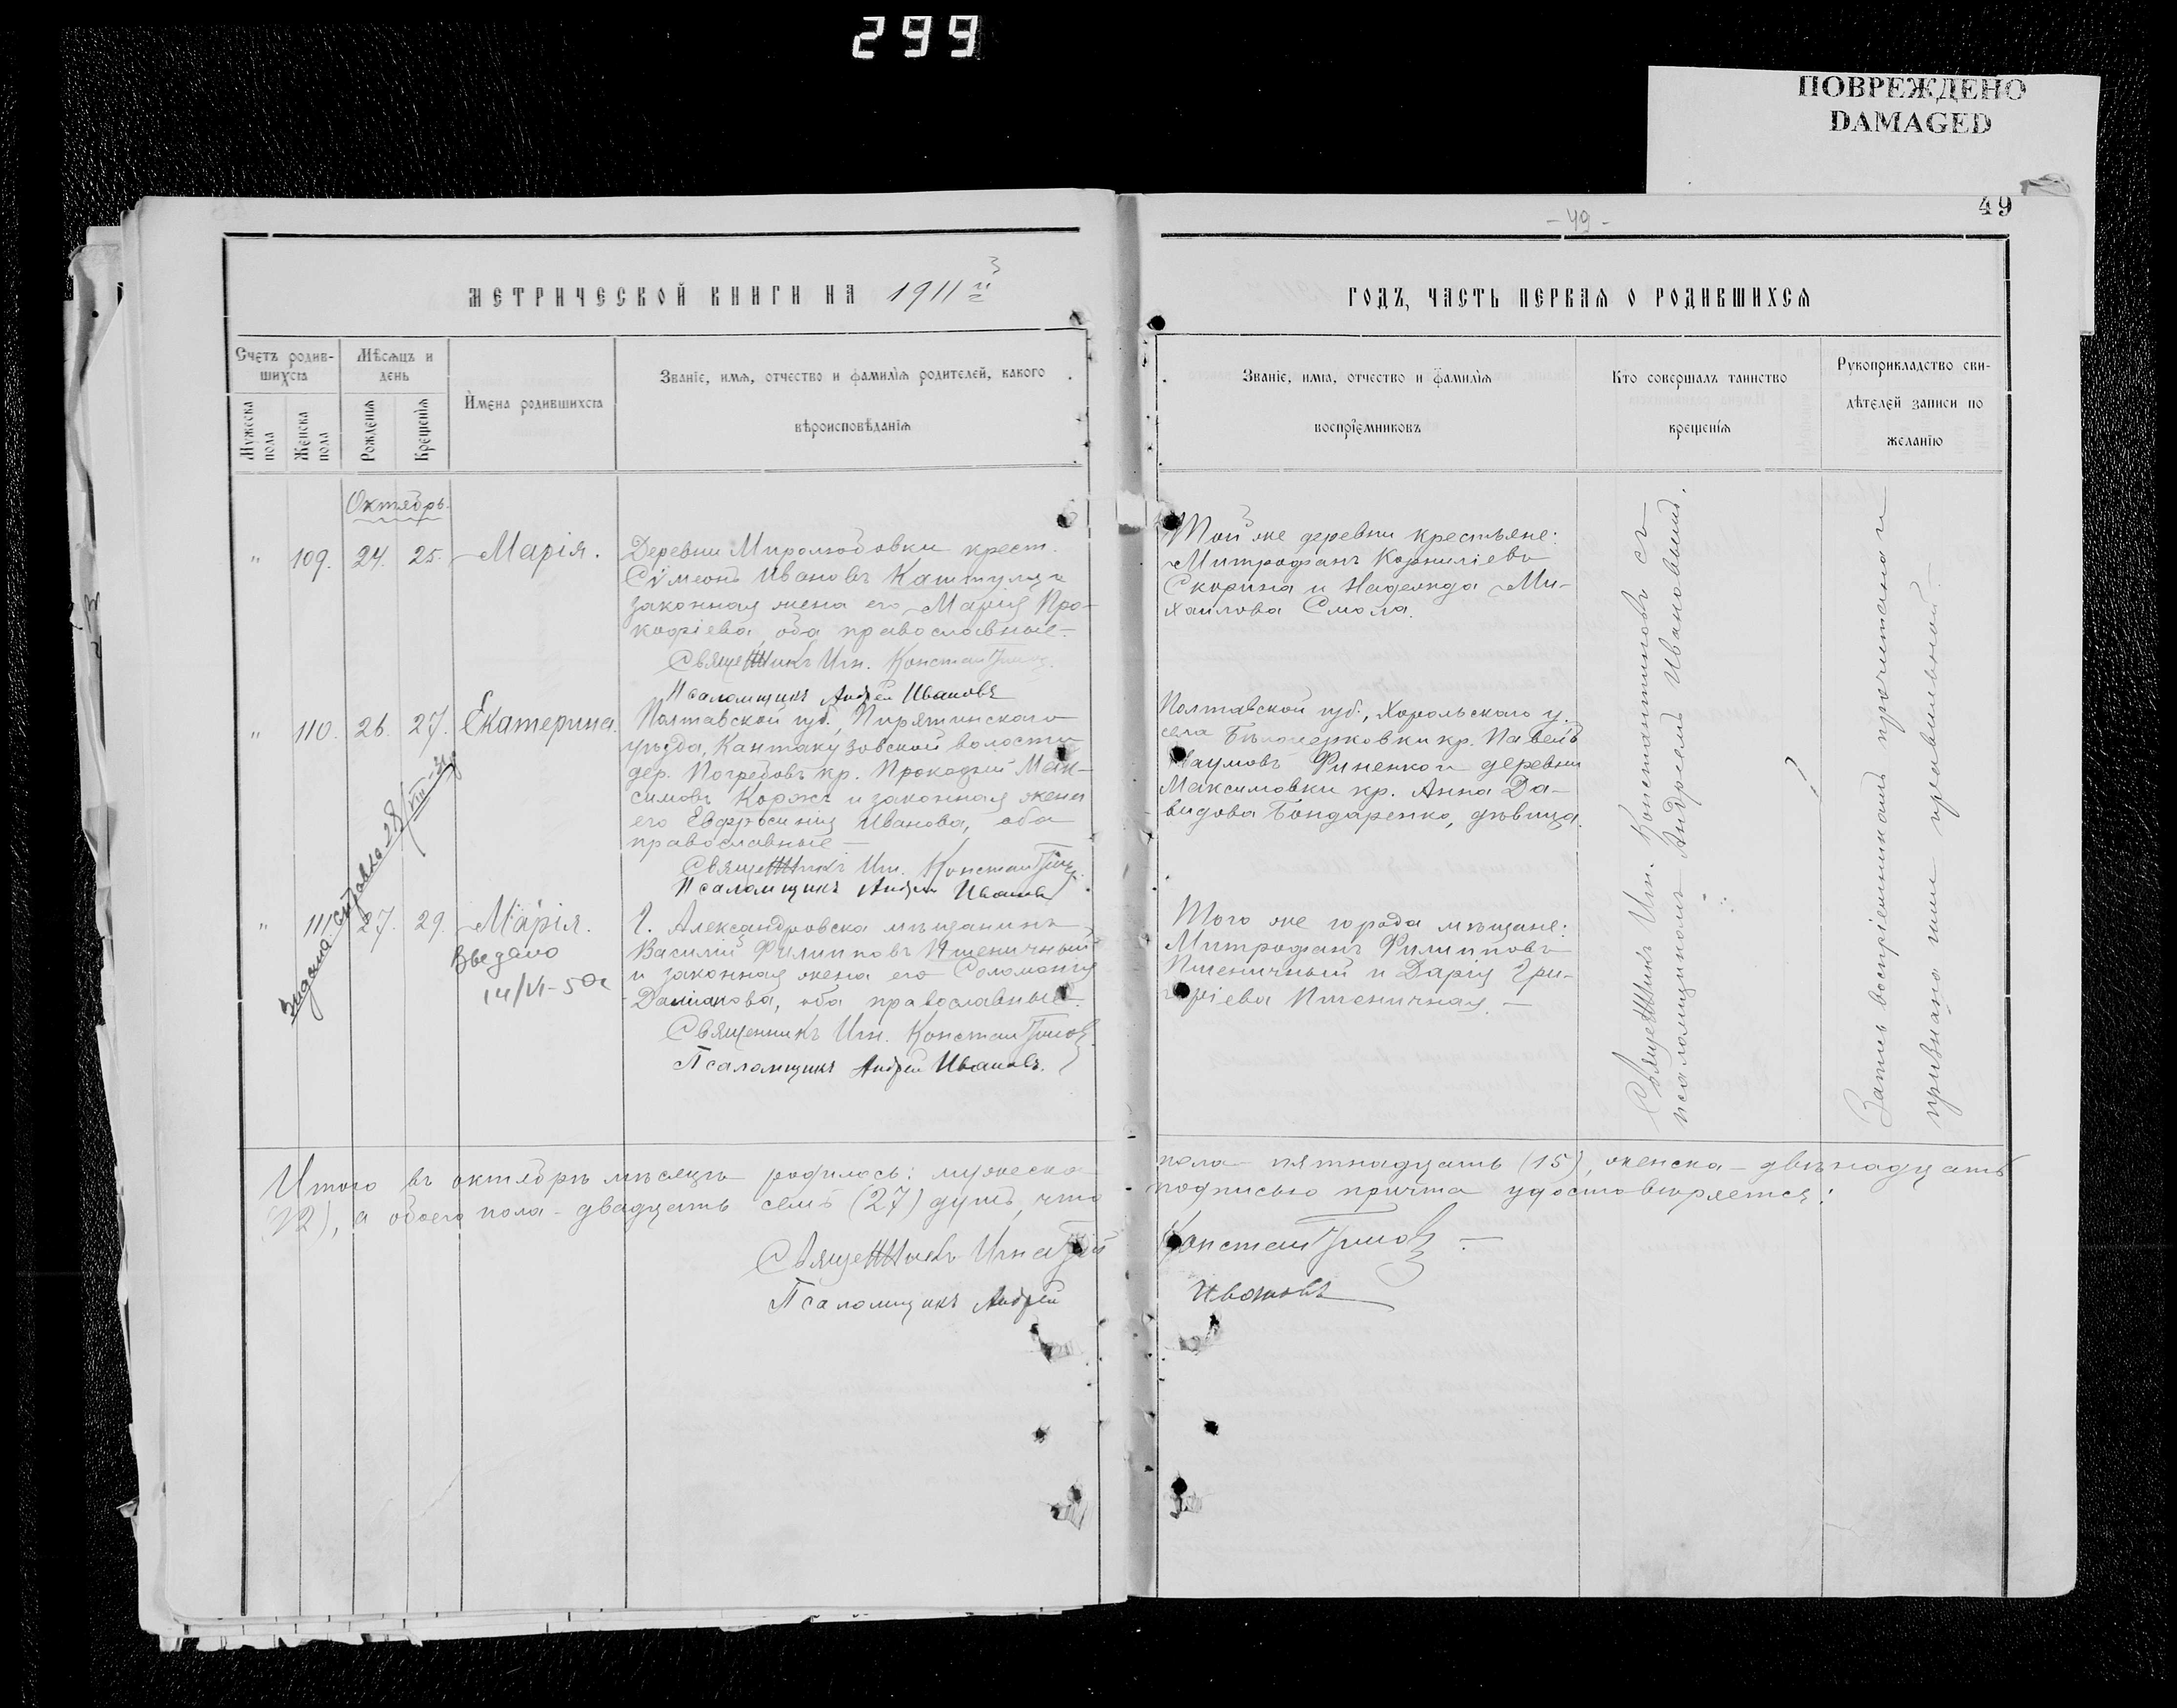 299
ПОВРЕЖДЕНО
DAMAGED
49
- 49 -
МЕТРИЧЕСКОЙ КНИГИ НА 1911й
3
ГОДЪ, ЧАСТЬ ПЕРВАЯ О РОДИВШИХСЯ
Счетъ родив-
шихся
Мужеска
пола
Женска
пола
Мѣсяцъ и
день
Рожденія
Крещенія
Имена родившихся
Званіе, имя, отчество и фамилія родителей, какого
вѣроисповѣданія
Званіе, имя, отчество и фамилія
воспріемниковъ
Кто совершалъ таинство
крещенія
Рукоприкладство сви-
дѣтелей записи по
желанію
Октябрь.
" 109. 24. 25. Марія.
Деревни Миролюбовки крест.
Сѵмеонъ Ивановъ Каштуля и
законная жена его Марія Про-
кофіева, оба православные.
Священникъ Игн. Константиновъ.
Псаломщикъ Андрей Ивановъ
Той же деревни крестьяне:
Митрофанъ Корниліевъ
Скорина и Надежда Ми-
хаилова Смола.
" 110. 26. 27. Екатерина.
Полтавской губ., Пирятинскаго
уѣзда, Кантакузовской волости
дер. Погребовъ кр. Прокофій Мак-
симовъ Коржъ и законная жена
его Евфросинія Иванова, оба
православные —
Священникъ Игн. Константиновъ.
Псаломщикъ Андрей Ивановъ
Полтавской губ., Хорольскаго у.
села Бѣлоцерковки кр. Павелъ
Наумовъ Финенко и деревни
Максимовки кр. Анна Да-
видова Бондаренко, дѣвица.
" 111. 27. 29. Марія.
Видана справка 28/VIII-31
Зведено
14/VI-50г
Г. Александровска мѣщанинъ
Василій Филипповъ Пшеничный
и законная жена его Соломонія
Даміанова, оба православные.
Священникъ Игн. Константиновъ.
Псаломщикъ Андрей Ивановъ.
Того же города мѣщане:
Митрофанъ Филипповъ
Пшеничный и Дарія Гри-
горіева Пшеничная. —
Священникъ Игн. Константиновъ съ
псаломщикомъ Андреемъ Ивановымъ.
?
Запись воспріемниками прочитана и
признана ими правильной. —
Итого въ октябрѣ мѣсяцѣ родилось: мужеска
пола пятнадцать (15), женска - двѣнадцать
(12), а обоего пола - двадцать семь (27) душъ, что
подписью причта удостовѣряется:
Священникъ Игнатій Константиновъ —
Псаломщикъ Андрей Ивановъ